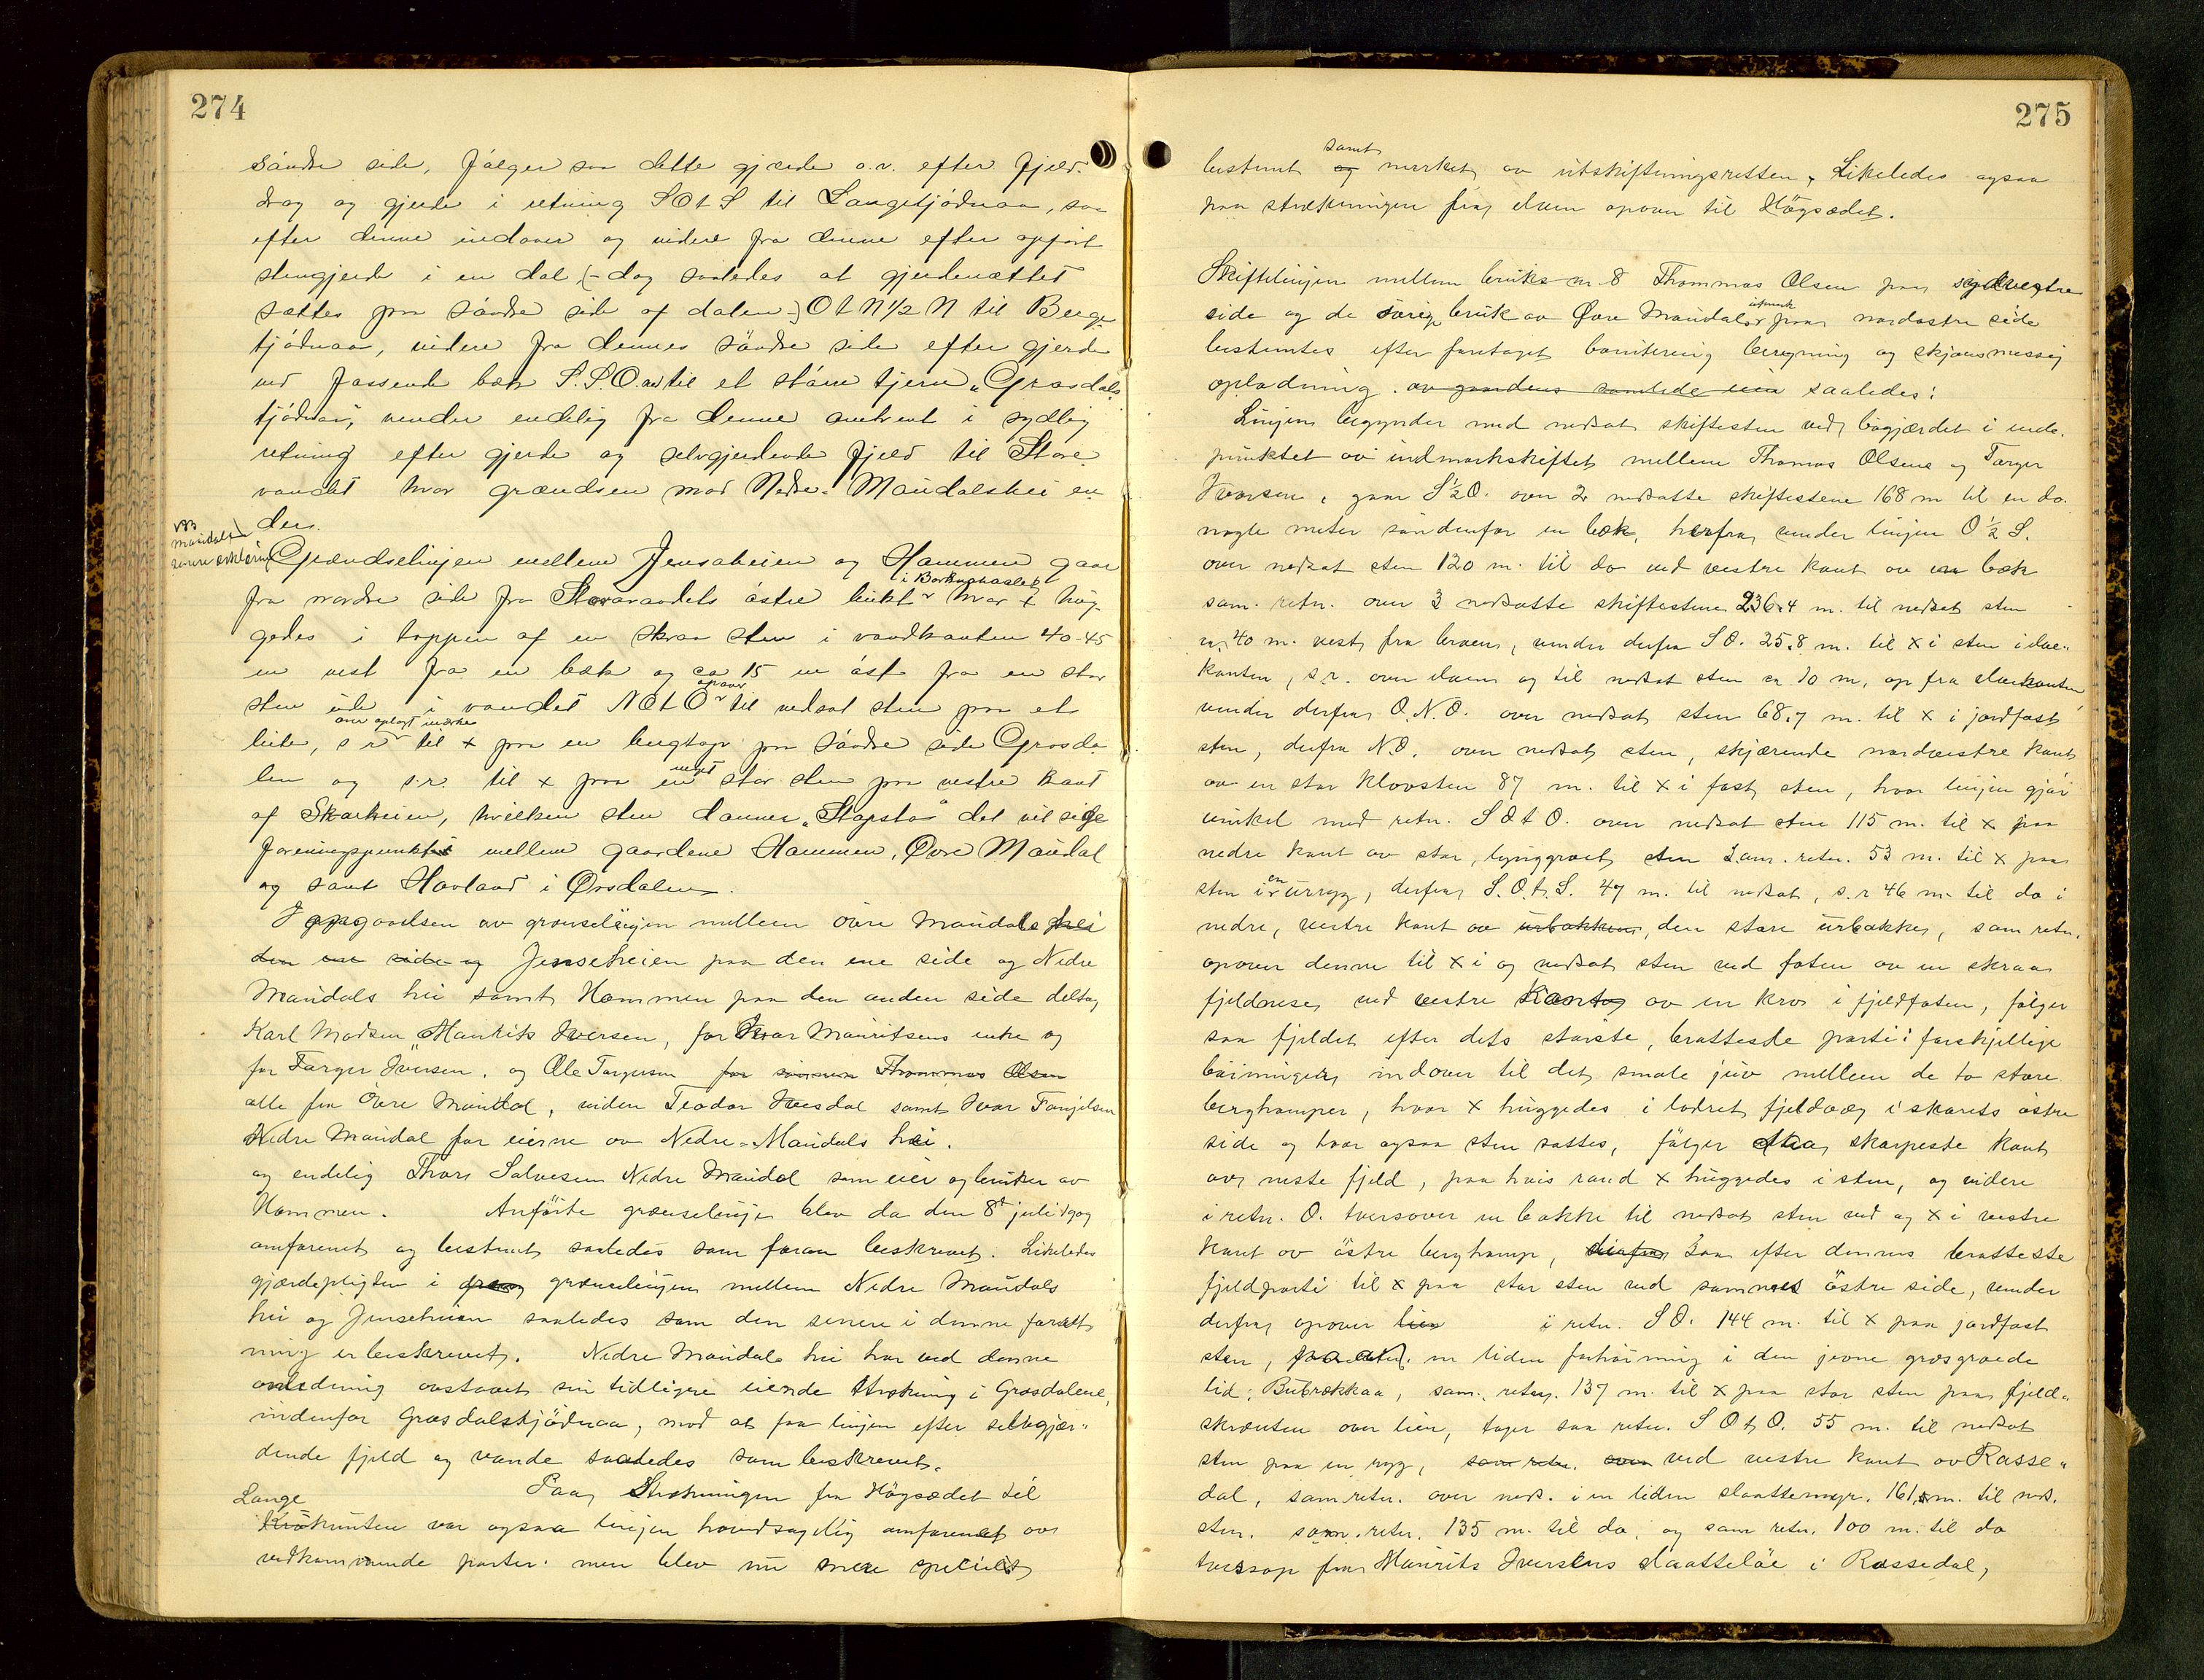 274
söndre side, følger saa dette gjærde o.v. efter fjeld-
drag og gjerde i retning SOtS til Langetjödnaa, saa
efter denne indover og videre fra denne efter opfört
stengjerde i en dal (- dog saaledes at gjerderættet
sættes paa söndre side af dalen -) OtN 1/2 N til Berge
tjödnaa, videre fra dennes söndre side efter gjerde
ved fossende bæk S.S.O. til et större tjern „Grasdals
tjödnaa“, vender endelig fra denne omtrent i sydlig
retning efter gjerde og selvgjerdende fjeld til Store
vandet hvor grændsen mod Nedre-Mandalshei en
der.
Grændselinjen mellem Jensaheien og Hammen gaar
fra nordre side fra Storavandets östre bukt i hvor + hug-
gedes i toppen af en skraa sten i vandkanten 40-45
m vest fra en bæk og ca 15 m öst fra en stor
sten ude i vandet NOtO opover til nedsat sten paa et
over oplagt mærke
leite, s r til + paa en bergtop paa söndre side Grosda
len og s.r. til x paa en meget stor sten paa vestre kant
af Skarheien, hvilken sten danner „Stapsto“ det vil sige
foreningspunktet mellem gaardene Hammen, Øvre Mandal
og samt Hovland i Ørsdalen.
I opgaaelsen av grænselinjen mellem övre Mandals hei
den ene side og Jensaheien paa den ene side og Nedre
Mandals hei samt Hammen paa den anden side deltog
Karl Madsen, Maurits Iversen, for Ivar Mauritsens enke og
for Tørger Iversen, og Ole Torgersen for svisesen Thommas Olsen
alle fra Övre Mandal, viden Teodor Ivesdal samt Ivar Tønjelsen
Nedre Mandal for eierne av Nedre-Mandals hei.
og endelig Thore Salvesen Nedre Mandal som eier og bruker av
Hammen. Anførte grænselinje blev da den 8de juli 1909
omforenet og bestemt saaledes som foran beskrevet. Likeledes
gjærdepligten i græn grænselinjen mellem Nedre Mandals
hei og Jensaheien saaledes som den senere i denne forrett
ning er beskrevet. Nedre Mandals hei har ved denne
anledning avstaaet sin tidligere eiende strekning i Grosdalene,
indenfor Grosdalstjödnaa, mod at faa linjen efter selvgjær-
dende fjeld og vande saaledes som beskrevet.
Paa Strekningen fra Högsædet til
Lange
Krokunten var ogsaa linjen hovedsagelig omforenet av
vedkommende parter. men blev nu mere specielt
275
samt
bestemt og merket av utskiftningsretten, Likeledes ogsaa
paa strekningen fra elven opover til Högsædet.
Skiftelinjen mellem bruks nr 8 Thommas Olsen paa sydvestre
side og de övrige bruk av Øvre Mandals utmark paa nordostre side
bestemtes efter foretaget bonitering beregning og skjønsmessig
opladning. av gaardens samlede eie saaledes:
Linjen begynder med nedsat skiftesten ved bøgjærdet i ende-
punktet av indmarkskiftet mellem Thomas Olsens og Tørger
Iversen, gaar S½O. over 2 nedsatte skiftestene 168 m til en do.
nogle meter söndenfor en bæk, herfra vender linjen O ½ S.
over nedsat sten 120 m. til do ved vestre kant av en bæk
sam. retn. over 3 nedsatte skiftestene 236.4 m. til nedsat sten
ca 40 m. vest fra broen, vender derfra SO. 25.8 m. til x i sten i elve-
kanten, s.r. over elven og til nedsat sten ca 10 m, op fra elvekanten
vender derfra O.N.O. over nedsat sten 68.7 m. til x i jordfast
sten, derfra N.O. over nedsat sten, skjærende nordvestre kant
av en stor Klovsten 87 m. til x i fast sten, hvor linjen gjör
vinkel med retn. SOtO. over nedsat sten 115 m. til x paa
nedre kant av stor, lynggroet sten sam. retn. 53 m. til x paa
sten i en urryg, derfra S.O.t.S. 47 m. til nedsat, s.r 46 m. til do i
nedre, vestre kant av urbakken, den store urbakke, sam retn.
opover denne til x i og nedsat sten ved foten av en skraa
fjeldnese ved vestre Kant av en kro i fjeldfoten, følger
saa fjeldet efter dets største, bratteste parti i forskjellige
böininger indover til det smale juv mellem de to store
berghamper, hvor x huggedes i lodret fjeldveg i skarets östre
side og hvor ogsaa sten sattes, fölger saa skarpeste kant
av neste fjeld, paa hvis rand x huggedes i sten, og videre
i retn. O. tversover en bakke til nedsat sten ved og x i vestre
Kant av östre berghamp, derfra saa efter dennes bratteste
fjeldparti til x paa stor sten ved sammes östre side, vender
derfra opover lien i retn. SO. 144 m. til x paa jordfast
sten, paa en liden forhöining i den jevne græsgroede
lid: Bubrækkaa, sam. retn. 137 m. til x paa stor sten paa fjeld-
skrænten over lien, tager saa retn. SOtO. 55 m. til nedsat
sten paa en ryg, sam retn. over ved vestre kant av Rasse-
dal, sam retn. over neds. i en liden slaattemyr. 161 m. til neds.
sten. sam. retn. 135 m. til do, og sam retn. 100 m. til do
tversop fra Maurits Iversens slaatteløe i Rossedal,